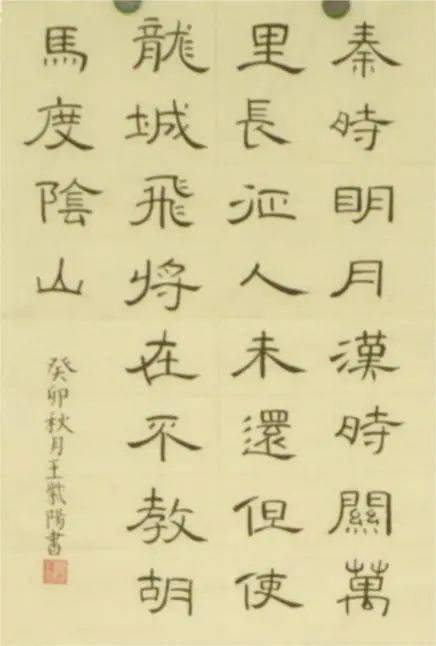 秦時眀月漢時關萬
里長征人未還但使
龍城飛將在不教胡
馬度陰山
癸卯秋月王紫陽書